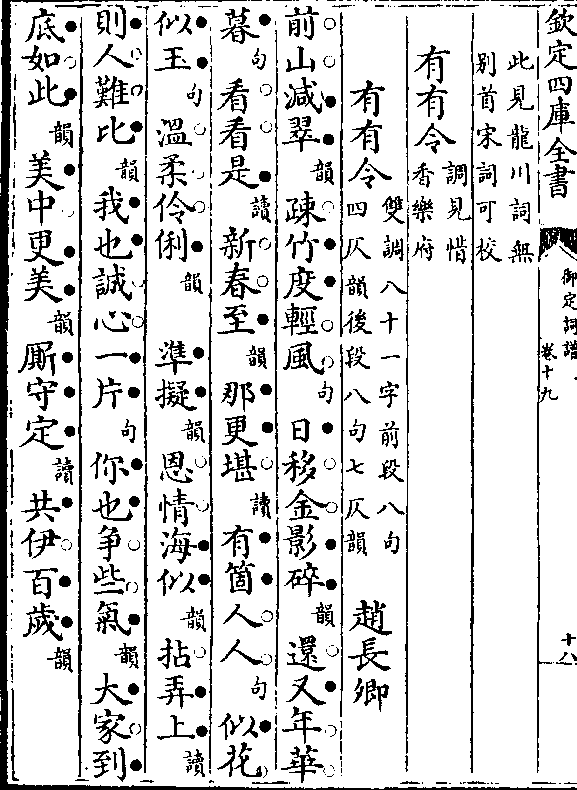 欽定四庫全書
御定詞譜
卷十九
十八
此見龍川詞無
别首宋詞可校
有有令
調見惜
香樂府
有有令
雙調八十一字前段八句
四仄韻後段八句七仄韻
趙長卿
前山減翠韻疎竹度輕風句日移金影碎韻還又年華
暮句看看是讀新春至韻那更堪讀有箇人人句似花
似玉句溫柔伶俐韻準擬韻恩情海似韻拈弄上讀
則人難比韻我也誠心一片句你也爭些氣韻大家到
底如此韻美中更美韻厮守定讀共伊百歲韻